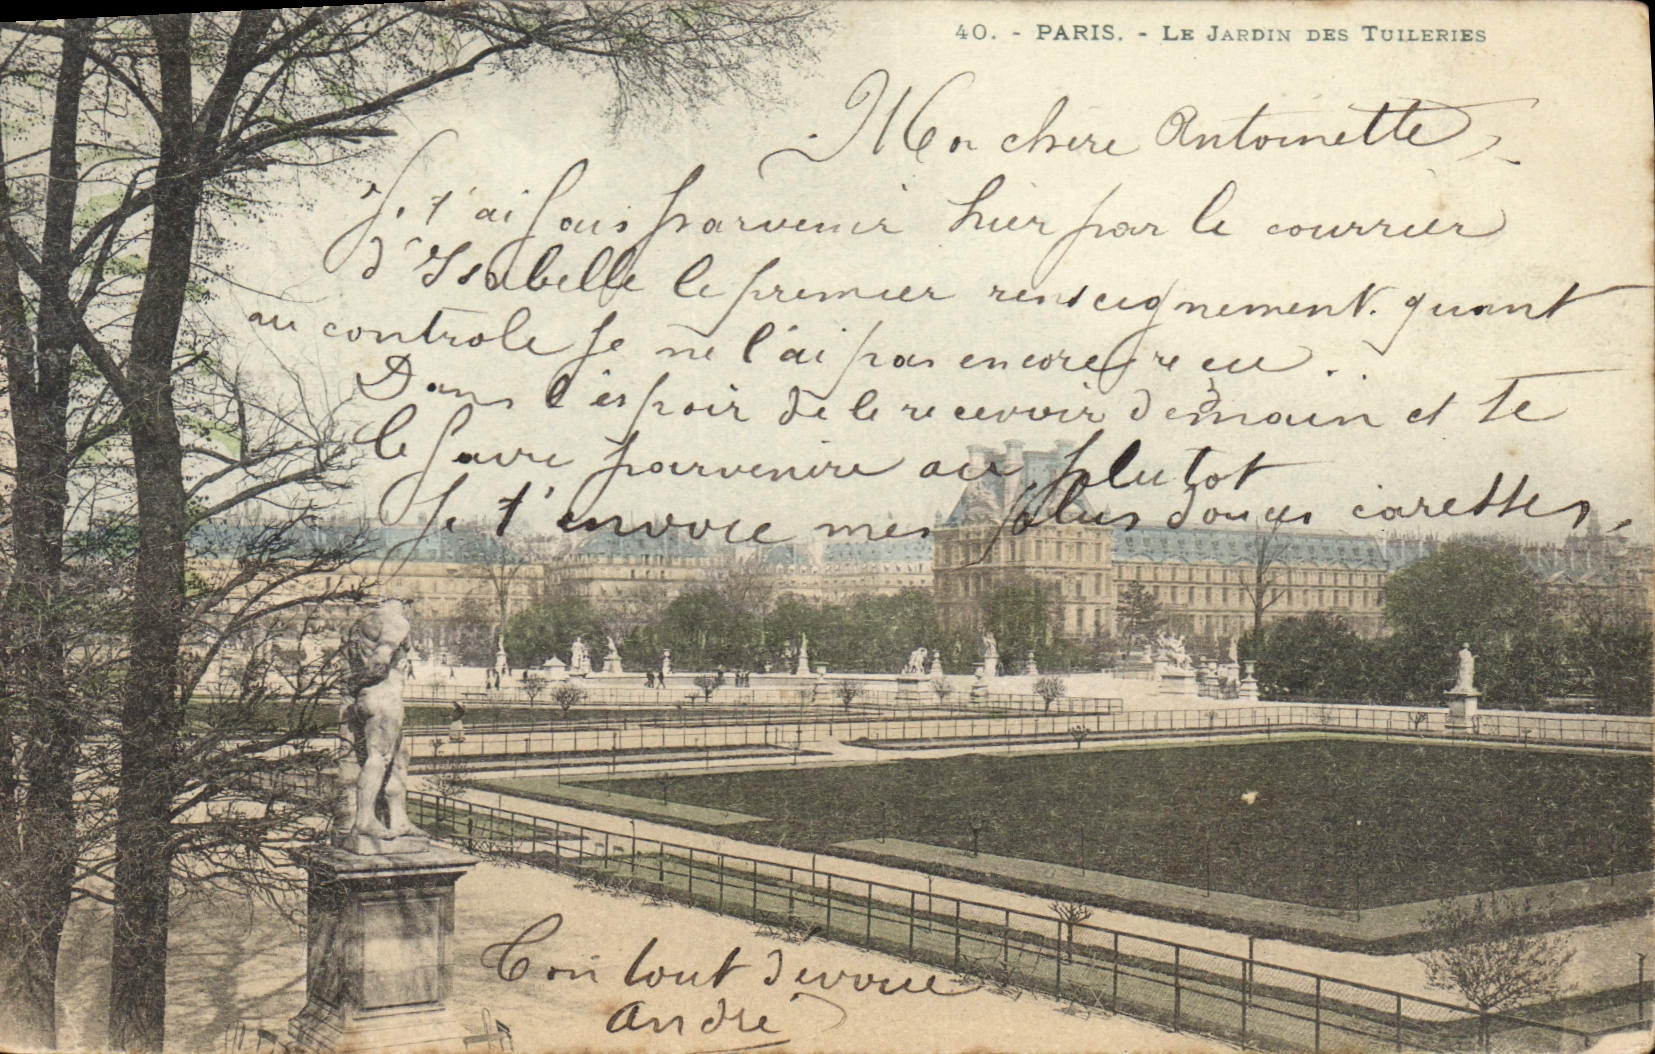 40. - PARIS. - LE JARDIN DES TUILERIES
Mon chère Antoinette,
Je t'ai fais parvenir hier par le courrier
d'Isabelle le premier renseignement. quant
au controle je ne l'ai pas encore reçu.
Dans l'espoir de le recevoir demain et te
le faire parvenire au plutot
Je t'envoie mes plus douces caresses,
Ton tout dévoué
André